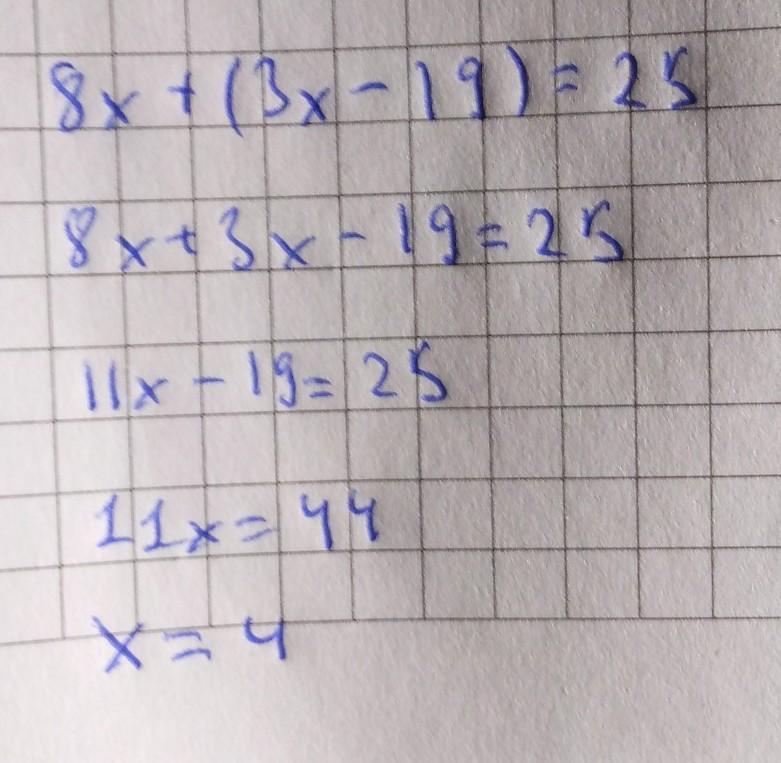 8x + (3x - 19) = 25
8x + 3x - 19 = 25
11x - 19 = 25
11x = 44
x = 4